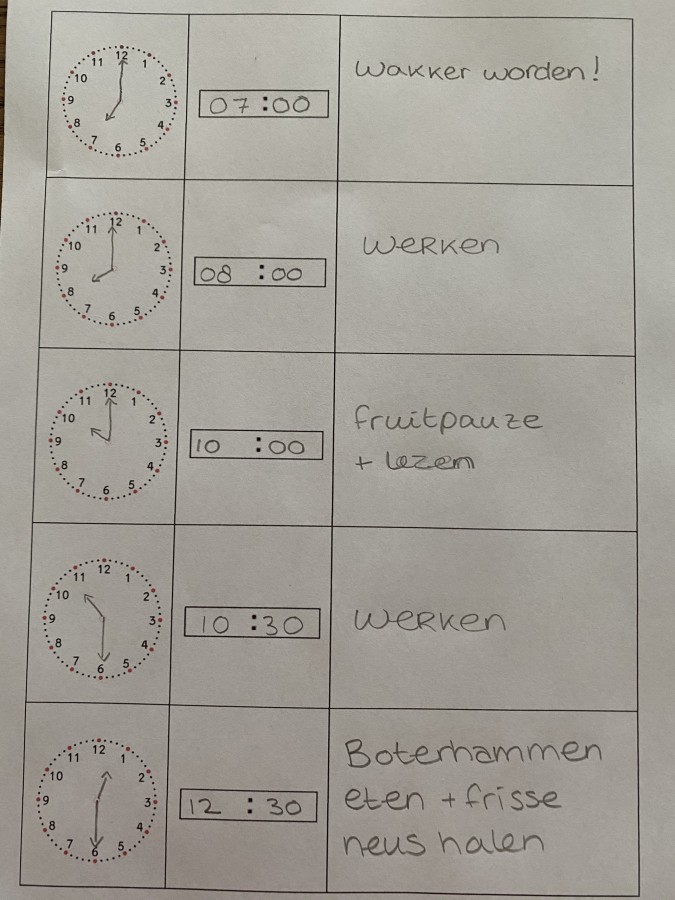 12
11 1
10 2
9 3
8 4
7 5
6
07:00
Wakker worden!
12
11 1
10 2
9 3
8 4
7 5
6
08:00
Werken
12
11 1
10 2
9 3
8 4
7 5
6
10:00
fruitpauze
+ lezen
12
11 1
10 2
9 3
8 4
7 5
6
10:30
Werken
12
11 1
10 2
9 3
8 4
7 5
6
12:30
Boterhammen
eten + frisse
neus halen